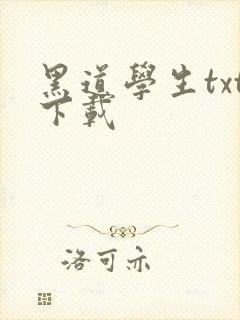 黑道學生txt
下載
洛可亦